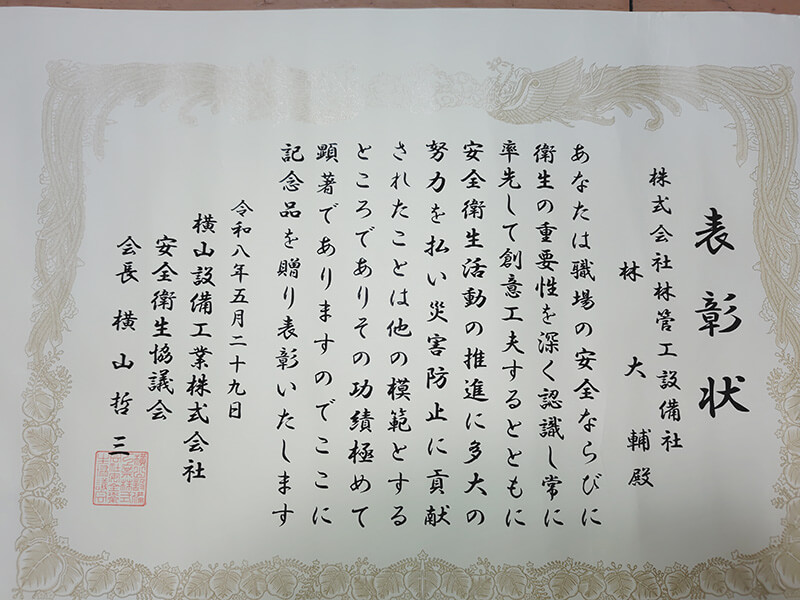 表彰状
株式会社林管工設備社
林大輔殿
あなたは職場の安全ならびに
衛生の重要性を深く認識し常に
率先して創意工夫するとともに
安全衛生活動の推進に多大の
努力を払い災害防止に貢献
されたことは他の模範とする
ところでありその功績極めて
顕著でありますのでここに
記念品を贈り表彰いたします
令和八年五月二十九日
横山設備工業株式会社
安全衛生協議会
会長 横山哲三